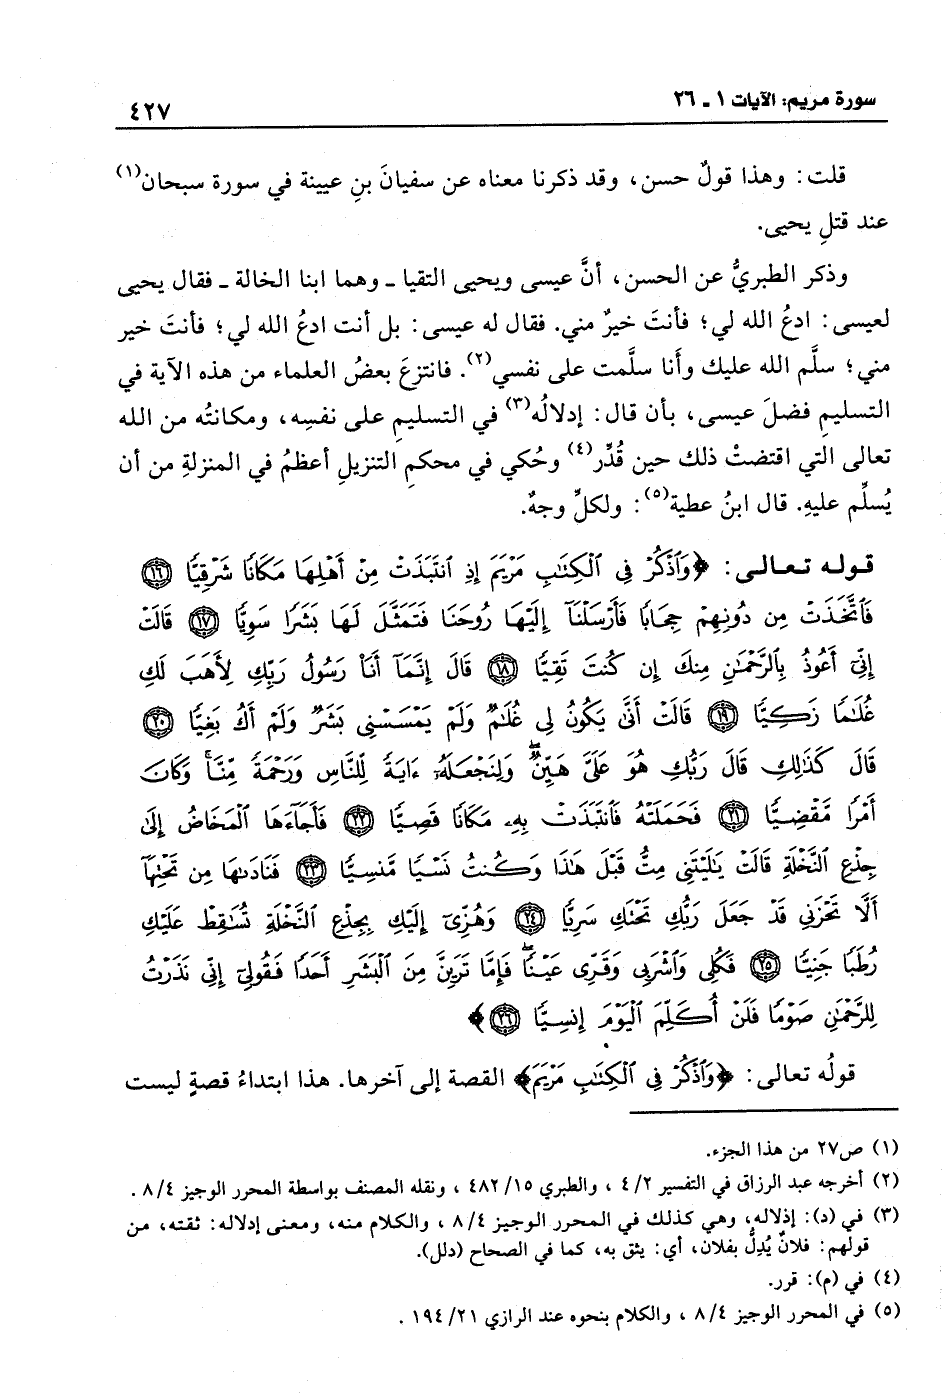 سورة مريم: الآيات ١ ـ ٢٦
٤٢٧
قلت: وهذا قولٌ حسن، وقد ذكرنا معناه عن سفيانَ بنِ عيينة في سورة سبحان(١)
عند قتلِ يحيى.
وذكر الطبريُّ عن الحسن، أنَّ عيسى ويحيى التقيا ـ وهما ابنا الخالة ـ فقال يحيى
لعيسى: ادعُ الله لي؛ فأنتَ خيرٌ مني. فقال له عيسى: بل أنت ادعُ الله لي؛ فأنتَ خير
مني؛ سلَّم الله عليك وأَنا سلَّمت على نفسي(٢). فانتزعَ بعضُ العلماء من هذه الآية في
التسليمِ فضلَ عيسى، بأن قال: إدلالُه(٣) في التسليمِ على نفسِه، ومكانتُه من الله
تعالى التي اقتضتْ ذلك حين قُدِّر(٤) وحُكي في محكمِ التنزيلِ أعظمُ في المنزلةِ من أن
يُسلَّم عليهِ. قال ابنُ عطية(٥): ولكلٍّ وجهٌ.
قوله تعالى: ﴿وَٱذْكُرْ فِى ٱلْكِتَٰبِ مَرْيَمَ إِذِ ٱنتَبَذَتْ مِنْ أَهْلِهَا مَكَانًا شَرْقِيًّا ١٦
فَٱتَّخَذَتْ مِن دُونِهِمْ حِجَابًا فَأَرْسَلْنَآ إِلَيْهَا رُوحَنَا فَتَمَثَّلَ لَهَا بَشَرًا سَوِيًّا ١٧ قَالَتْ
إِنِّىٓ أَعُوذُ بِٱلرَّحْمَٰنِ مِنكَ إِن كُنتَ تَقِيًّا ١٨ قَالَ إِنَّمَآ أَنَا۠ رَسُولُ رَبِّكِ لِأَهَبَ لَكِ
غُلَٰمًا زَكِيًّا ١٩ قَالَتْ أَنَّىٰ يَكُونُ لِى غُلَٰمٌ وَلَمْ يَمْسَسْنِى بَشَرٌ وَلَمْ أَكُ بَغِيًّا ٢٠
قَالَ كَذَٰلِكِ قَالَ رَبُّكِ هُوَ عَلَىَّ هَيِّنٌ ۖ وَلِنَجْعَلَهُۥٓ ءَايَةً لِّلنَّاسِ وَرَحْمَةً مِّنَّا ۚ وَكَانَ
أَمْرًا مَّقْضِيًّا ٢١ فَحَمَلَتْهُ فَٱنتَبَذَتْ بِهِۦ مَكَانًا قَصِيًّا ٢٢ فَأَجَآءَهَا ٱلْمَخَاضُ إِلَىٰ
جِذْعِ ٱلنَّخْلَةِ قَالَتْ يَٰلَيْتَنِى مِتُّ قَبْلَ هَٰذَا وَكُنتُ نَسْيًا مَّنسِيًّا ٢٣ فَنَادَىٰهَا مِن تَحْتِهَآ
أَلَّا تَحْزَنِى قَدْ جَعَلَ رَبُّكِ تَحْتَكِ سَرِيًّا ٢٤ وَهُزِّىٓ إِلَيْكِ بِجِذْعِ ٱلنَّخْلَةِ تُسَٰقِطْ عَلَيْكِ
رُطَبًا جَنِيًّا ٢٥ فَكُلِى وَٱشْرَبِى وَقَرِّى عَيْنًا ۖ فَإِمَّا تَرَيِنَّ مِنَ ٱلْبَشَرِ أَحَدًا فَقُولِىٓ إِنِّى نَذَرْتُ
لِلرَّحْمَٰنِ صَوْمًا فَلَنْ أُكَلِّمَ ٱلْيَوْمَ إِنسِيًّا ٢٦﴾
قولُه تعالى: ﴿وَٱذْكُرْ فِى ٱلْكِتَٰبِ مَرْيَمَ﴾ القصة إلى آخرها. هذا ابتداءُ قصةٍ ليست
(١) ص٢٧ من هذا الجزء.
(٢) أخرجه عبد الرزاق في التفسير ٤/٢ ، والطبري ٤٨٢/١٥ ، ونقله المصنف بواسطة المحرر الوجيز ٨/٤ .
(٣) في (د): إذلاله، وهي كذلك في المحرر الوجيز ٨/٤ ، والكلام منه، ومعنى إدلاله: ثقته، من
قولهم: فلانٌ يُدِلُّ بفلان، أي: يثق به، كما في الصحاح (دلل).
(٤) في (م): قرر.
(٥) في المحرر الوجيز ٨/٤ ، والكلام بنحوه عند الرازي ١٩٤/٢١ .